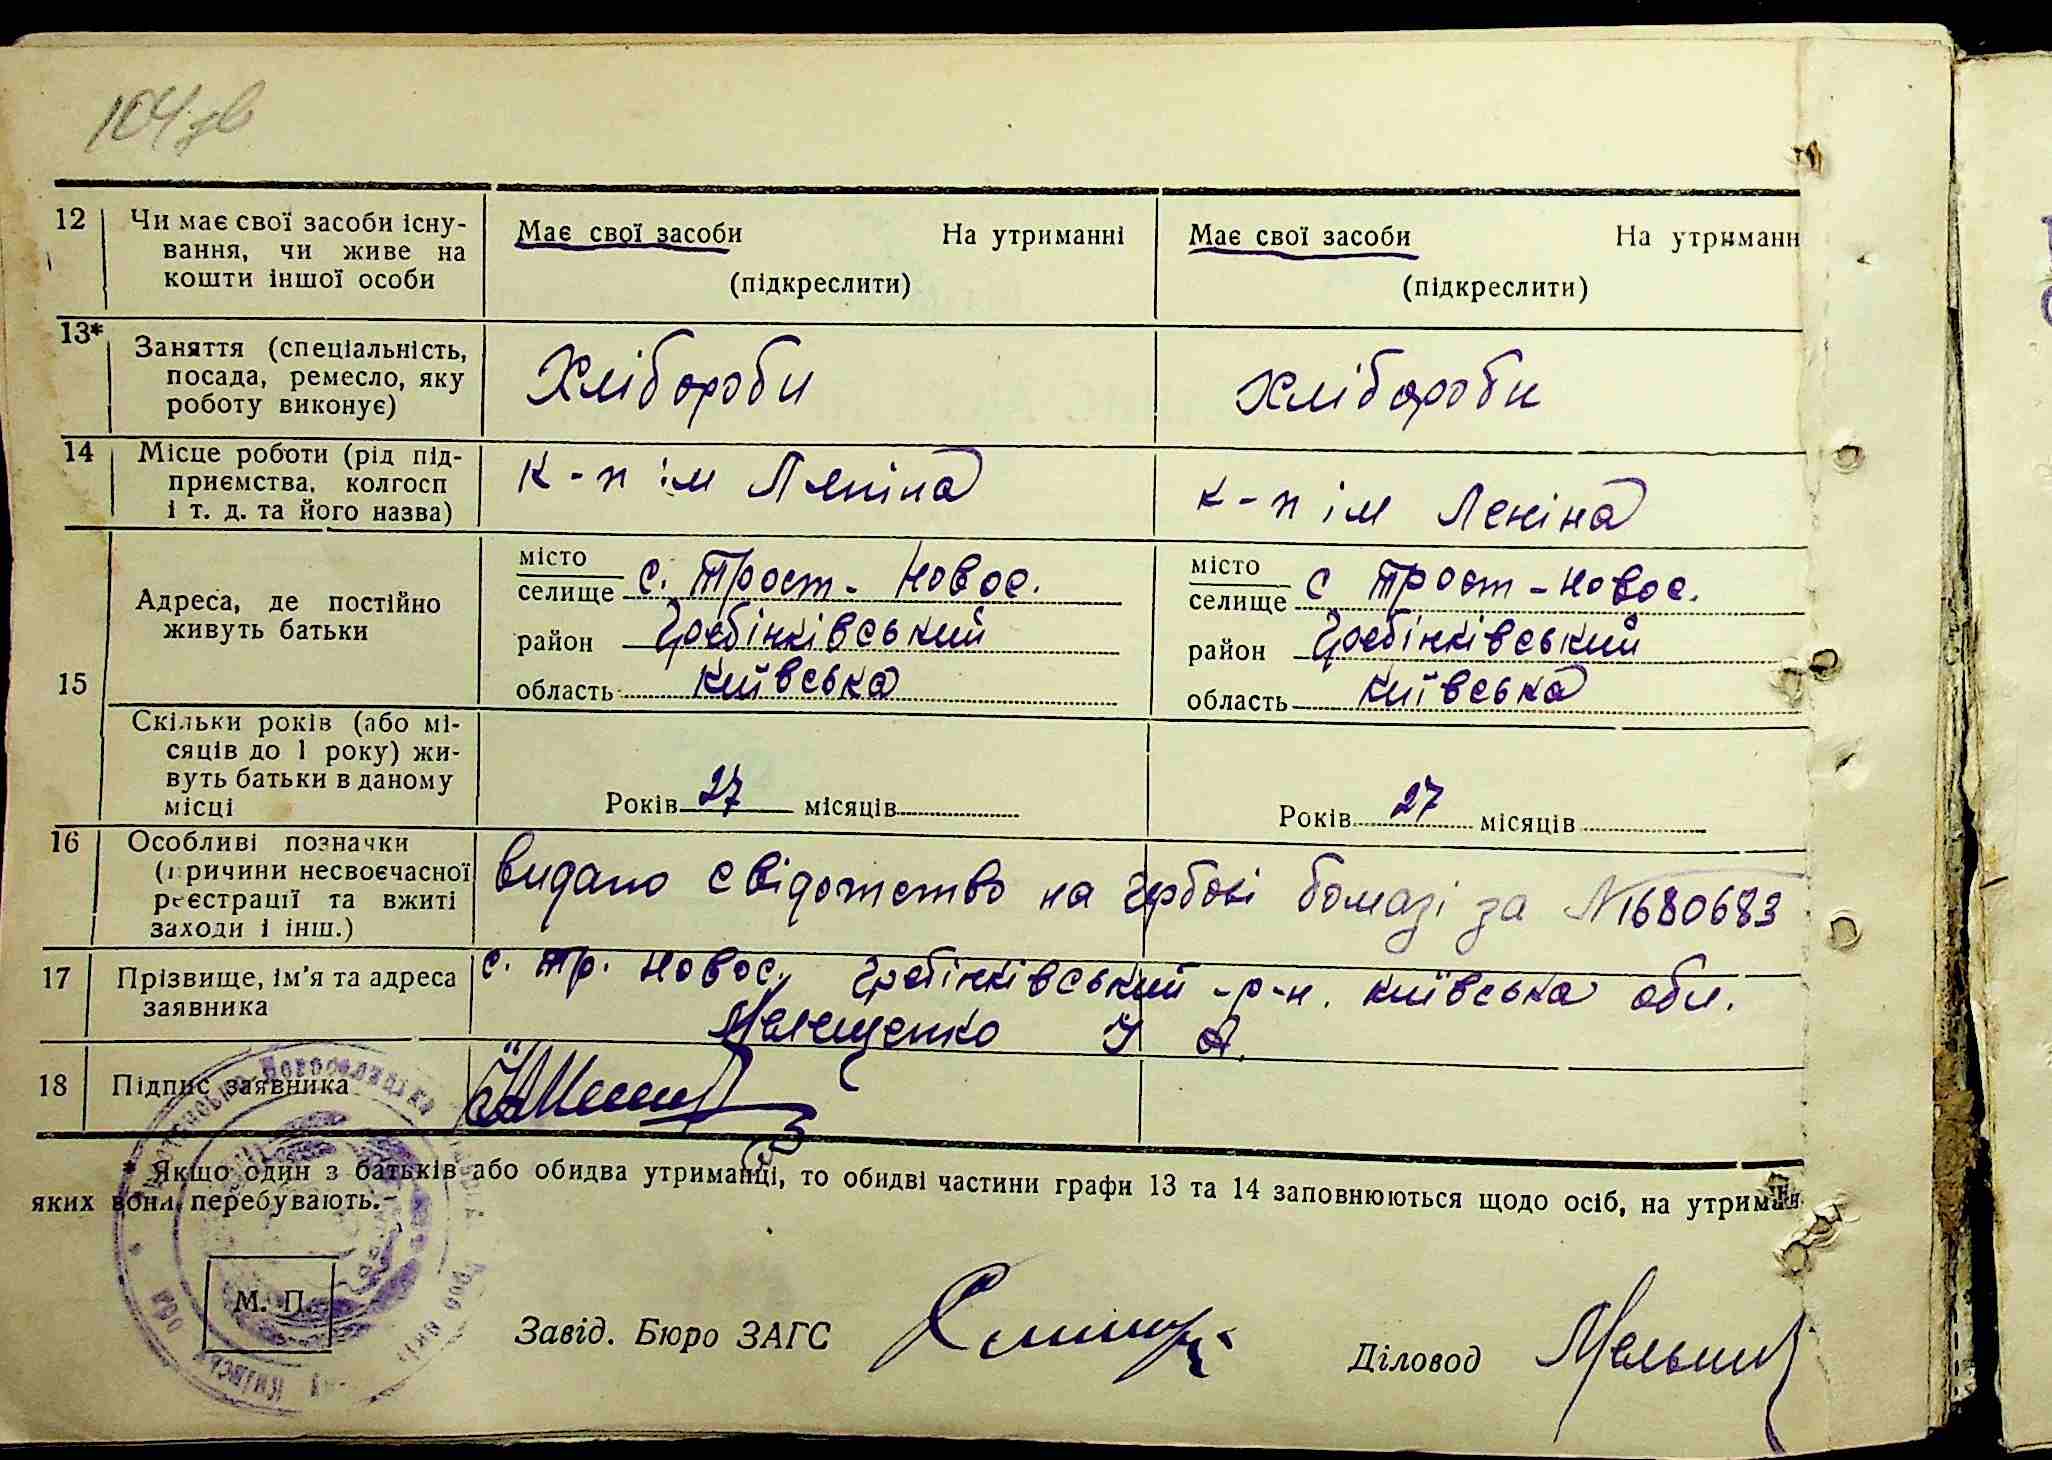 104 зв
12 Чи має свої засоби існу- Має свої засоби На утриманні Має свої засоби На утриманн
вання, чи живе на
кошти іншої особи (підкреслити) (підкреслити)
13* Заняття (спеціальність, Хлібороби Хлібороби
посада, ремесло, яку
роботу виконує)
14 Місце роботи (рід під- к-п ім Ляніна к-п ім Леніна
приємства, колгосп
і т. д. та його назва)
15 Адреса, де постійно місто с. Трост-Новос. місто с Трост-Новос.
живуть батьки селище селище
район Гребінківський район Гребінківський
область Київська область Київська
Скільки років (або мі-
сяців до 1 року) жи-
вуть батьки в даному
місці Років 27 місяців Років 27 місяців
16 Особливі позначки видано свідотство на гербові бомазі за №1680683
(причини несвоєчасної
реєстрації та вжиті
заходи і інш.)
17 Прізвище, ім'я та адреса с. Тр. Новос, Гребінківський р-н. Київська обл.
заявника
18 Підпис заявника
* Якщо один з батьків або обидва утриманці, то обидві частини графи 13 та 14 заповнюються щодо осіб, на утриман
яких вони перебувають.
М. П.
Завід. Бюро ЗАГС
Діловод